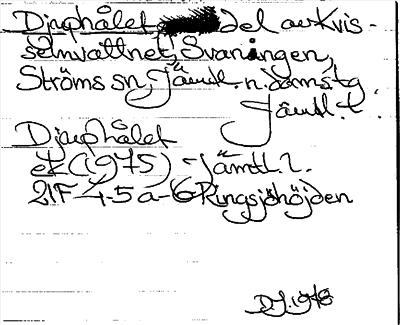 Djuphålet, del av Kvis-
selmvattnet, Svaningen,
Ströms sn, Jämtl. n. domstg
Jämtl. l.
Djuphålet
ek (1975) - Jämtl. l.
21F 4-5 a-b Ringsjöhöjden
D.J. 1978